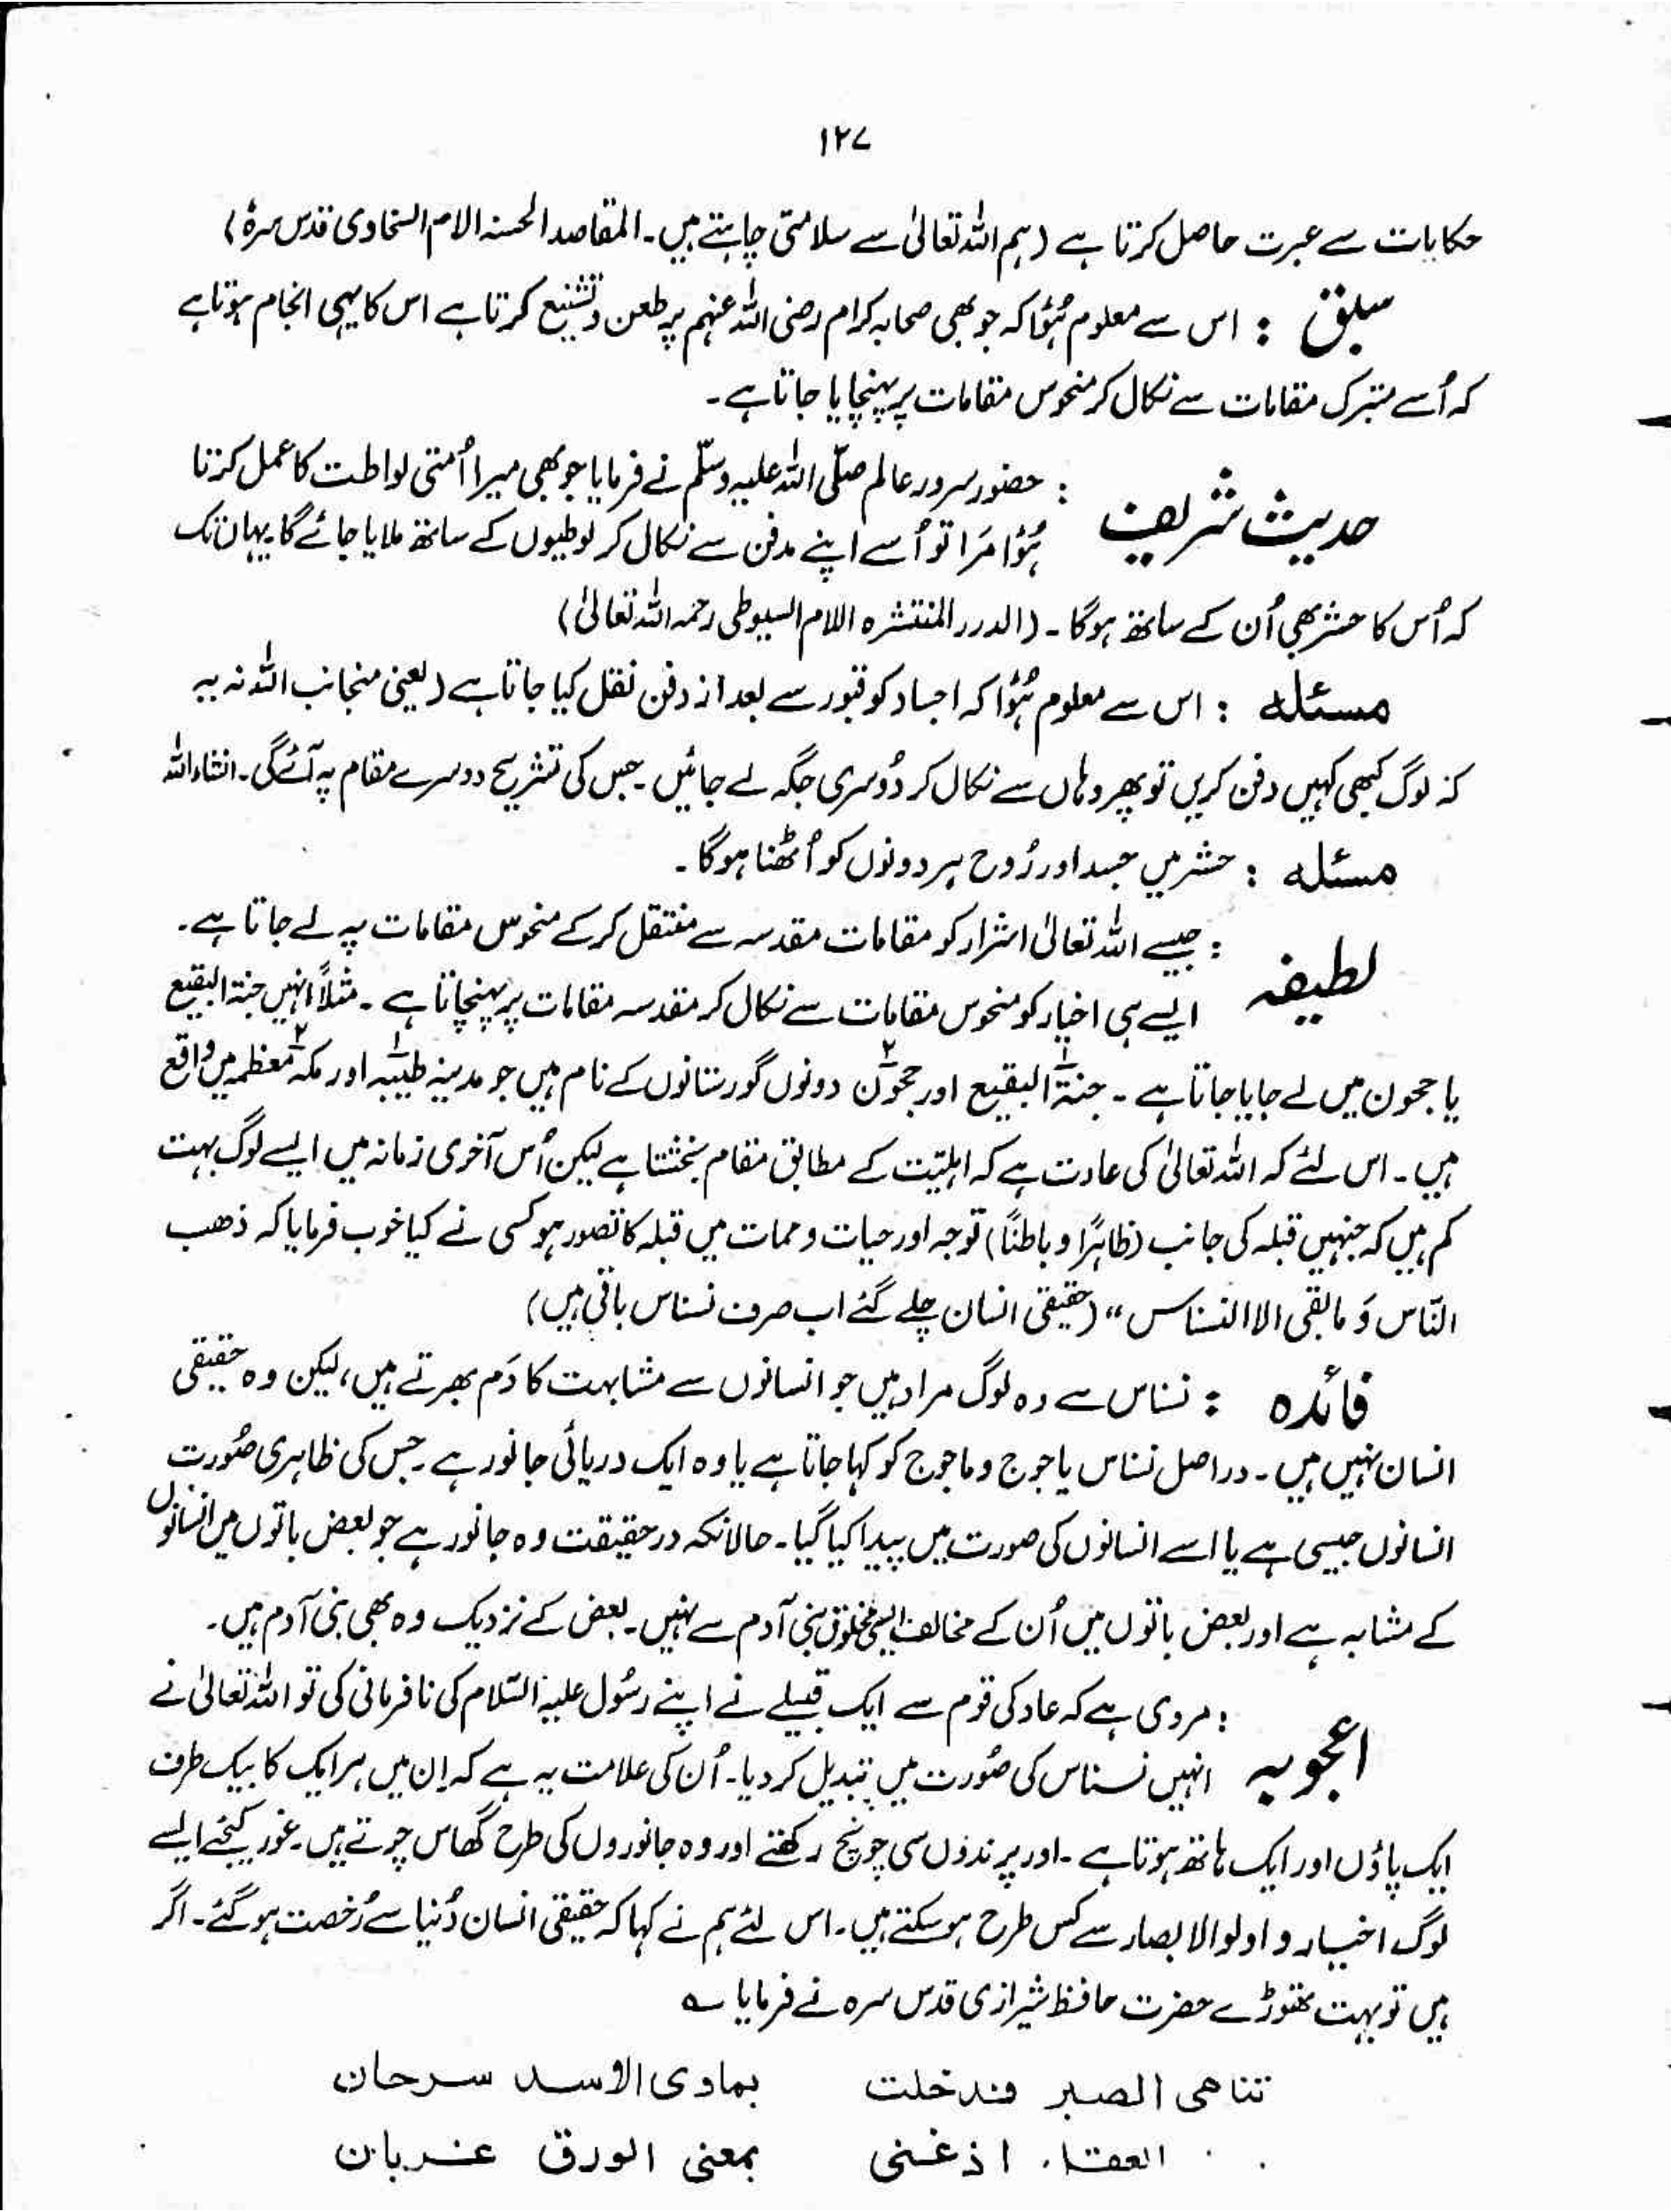 ۱۲۷
حکایات سے عبرت حاصل کرتا ہے (ہم اللہ تعالیٰ سے سلامتی چاہتے ہیں۔ المقاصد الحسنہ الامام السخاوی قدس سرہٗ)
سبق : اس سے معلوم ہُوا کہ جو بھی صحابہ کرام رضی اللہ عنہم پر طعن و تشنیع کرتا ہے اس کا یہی انجام ہوتا ہے
کہ اُسے متبرک مقامات سے نکال کر منحوس مقامات پر پہنچایا جاتا ہے۔
حدیث شریف : حضور سرور عالم صلّی اللہ علیہ وسلّم نے فرمایا جو بھی میرا اُمتی لواطت کا عمل کرتا
ہُوا مَرا تو اُسے اپنے مدفن سے نکال کر لوطیوں کے ساتھ ملایا جائے گا یہاں تک
کہ اُس کا حشر بھی اُن کے ساتھ ہوگا۔ (الدرر المنتشرہ اللام السیوطی رحمہ اللہ تعالیٰ)
مسئلہ : اس سے معلوم ہُوا کہ اجساد کو قبور سے بعد از دفن نقل کیا جاتا ہے (یعنی منجانب اللہ نہ یہ
کہ لوگ کبھی کہیں دفن کریں تو پھر وہاں سے نکال کر دُوسری جگہ لے جائیں۔ جس کی تشریح دوسرے مقام پہ آئے گی۔ انشاء اللہ
مسئلہ : حشر میں جسد اور رُوح ہر دونوں کو اُٹھنا ہوگا۔
لطیفہ : جیسے اللہ تعالیٰ اشرار کو مقامات مقدسہ سے منتقل کر کے منحوس مقامات پہ لے جاتا ہے۔
ایسے ہی اخیار کو منحوس مقامات سے نکال کر مقدسہ مقامات پر پہنچاتا ہے۔ مثلاً انہیں جنۃ البقیع
یا حجون میں لے جایا جاتا ہے۔ جنۃ۱ البقیع اور حجون۲ دونوں گورستانوں کے نام ہیں جو مدینہ طیّبہ۱ اور مکہ معظمہ۲ میں واقع
ہیں۔ اس لئے کہ اللہ تعالیٰ کی عادت ہے کہ اہلیّت کے مطابق مقام بخشتا ہے لیکن اُس آخری زمانہ میں ایسے لوگ بہت
کم ہیں کہ جنہیں قبلہ کی جانب (ظاہرًا و باطنًا) توجہ اور حیات و ممات میں قبلہ کا تصور ہو کسی نے کیا خوب فرمایا کہ ذھب
النّاس وَ مابقی الا النسناس“ (حقیقی انسان چلے گئے اب صرف نسناس باقی ہیں)
فائدہ : نسناس سے وہ لوگ مراد ہیں جو انسانوں سے مشابہت کا دَم بھرتے ہیں، لیکن وہ حقیقی
انسان نہیں ہیں۔ دراصل نسناس یاجوج و ماجوج کو کہا جاتا ہے یا وہ ایک دریائی جانور ہے۔ جس کی ظاہری صُورت
انسانوں جیسی ہے یا اسے انسانوں کی صورت میں پیدا کیا گیا۔ حالانکہ درحقیقت وہ جانور ہے جو بعض باتوں میں انسانوں
کے مشابہ ہے اور بعض باتوں میں اُن کے مخالف ایسی مخلوق بنی آدم سے نہیں۔ بعض کے نزدیک وہ بھی بنی آدم ہیں۔
اعجوبہ : مروی ہے کہ عاد کی قوم سے ایک قبیلے نے اپنے رسُول علیہ السّلام کی نافرمانی کی تو اللہ تعالیٰ نے
انہیں نسناس کی صُورت میں تبدیل کر دیا۔ اُن کی علامت یہ ہے کہ اِن میں ہر ایک کا بیک طرف
ایک پاؤں اور ایک ہاتھ ہوتا ہے۔ اور پرندوں سی چونچ رکھتے اور وہ جانوروں کی طرح گھاس چرتے ہیں۔ غور کیجئے ایسے
لوگ اخیار و اولوالابصار سے کس طرح ہو سکتے ہیں۔ اس لئے ہم نے کہا کہ حقیقی انسان دُنیا سے رُخصت ہو گئے۔ اگر
ہیں تو بہت تھوڑے حضرت حافظ شیرازی قدس سرہ نے فرمایا ؎
تناھی الصبر مذخلت بماوی الاسد سرحان
العقاء اذغنی بمعنی الورق غربان